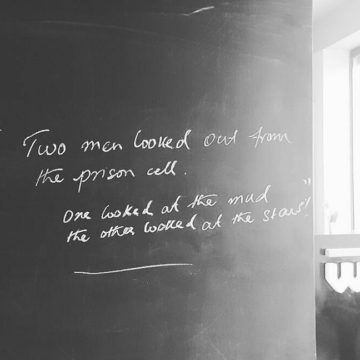 Two men looked out from
the prison cell.
One looked at the mud
the other looked at the stars"!
W